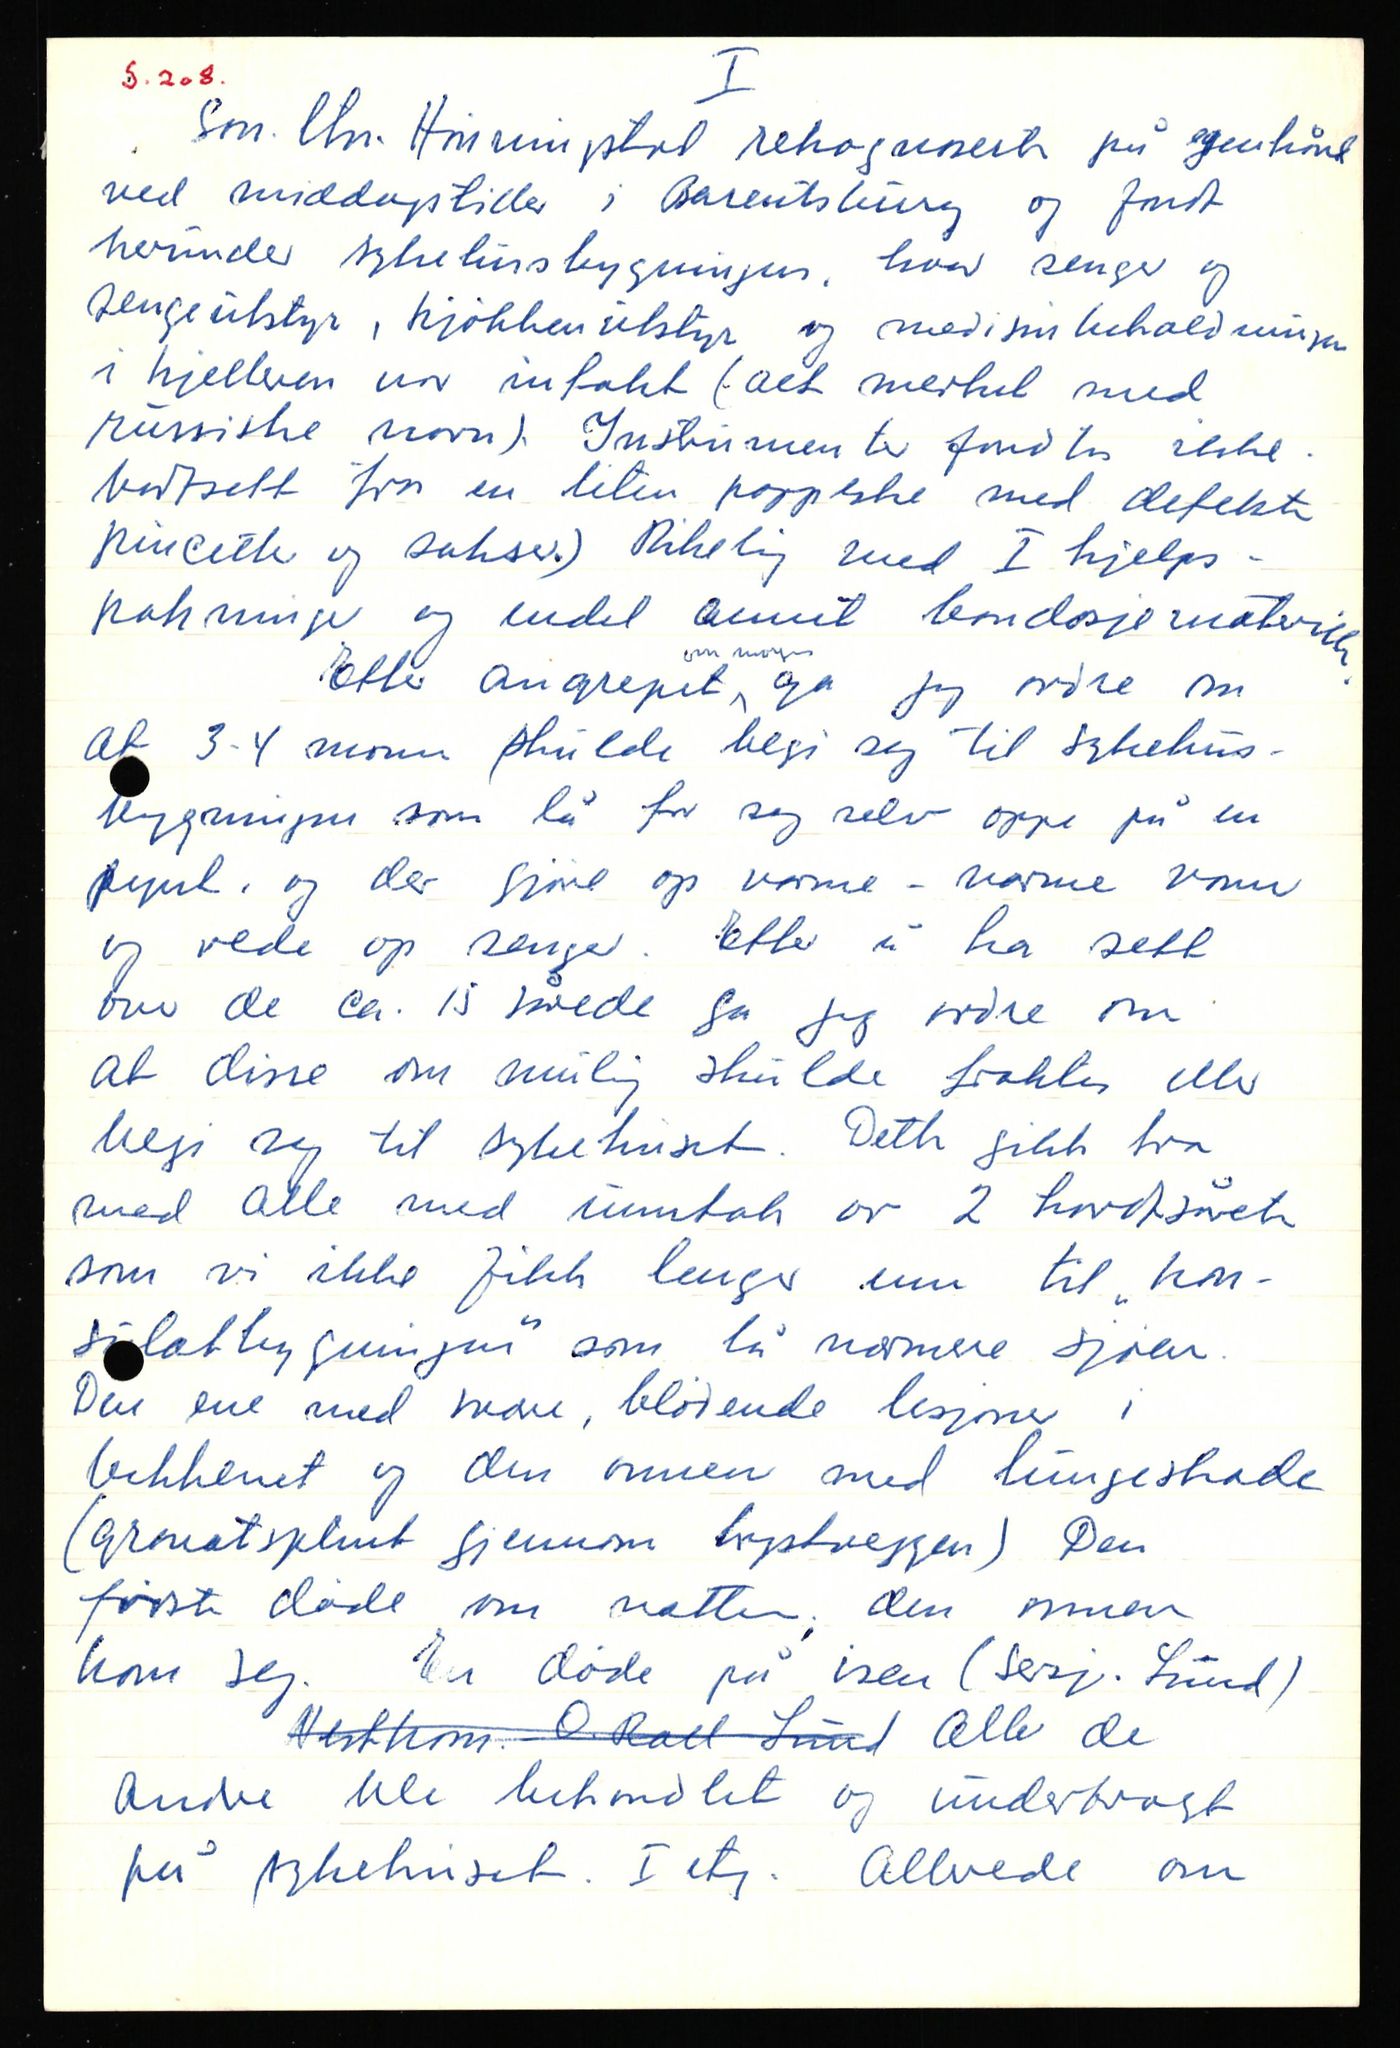 S. 208.
I
San. Chr. Hönningstad rekognoserte på egenhånd
ved middagstider i Barentsburg og fandt
herunder sykehusbygningen, hvor senger og
sengeutstyr, kjøkkenutstyr og medisinbeholdningen
i kjelleren var intakt (alt merket med
russiske navn). Instrumenter fandtes ikke.
bortsett fra en liten pappeske med defekte
pincetter og sakser.) Rikelig med I hjelps-
pakninger og endel annet bandasjemateriell.
Etter angrepet om morgen, ga jeg ordre om
at 3-4 mann skulde begi seg til sykehus-
bygningen som lå for seg selv oppe på en
pynt, og der gjøre op varme - varme vann
og rede op senger. Etter å ha sett
over de ca. 15 sårede ga jeg ordre om
at disse om mulig skulde fraktes eller
begi seg til sykehuset. Dette gikk bra
med alle med unntak av 2 hardtsårete
som vi ikke fikk lenger enn til "kon-
sulatbygningen" som lå nærmere sjøen.
Den ene med svære, blødende lesjoner i
bekkenet og den annen med lungeskade
(granatsplint gjennom brystveggen) Den
første døde om natten, den annen
kom seg. En døde på isen (sersj. Lund)
Nestkom. O. Roll Lund Alle de
andre ble behandlet og underbragt
på sykehuset. I etg. Allerede om